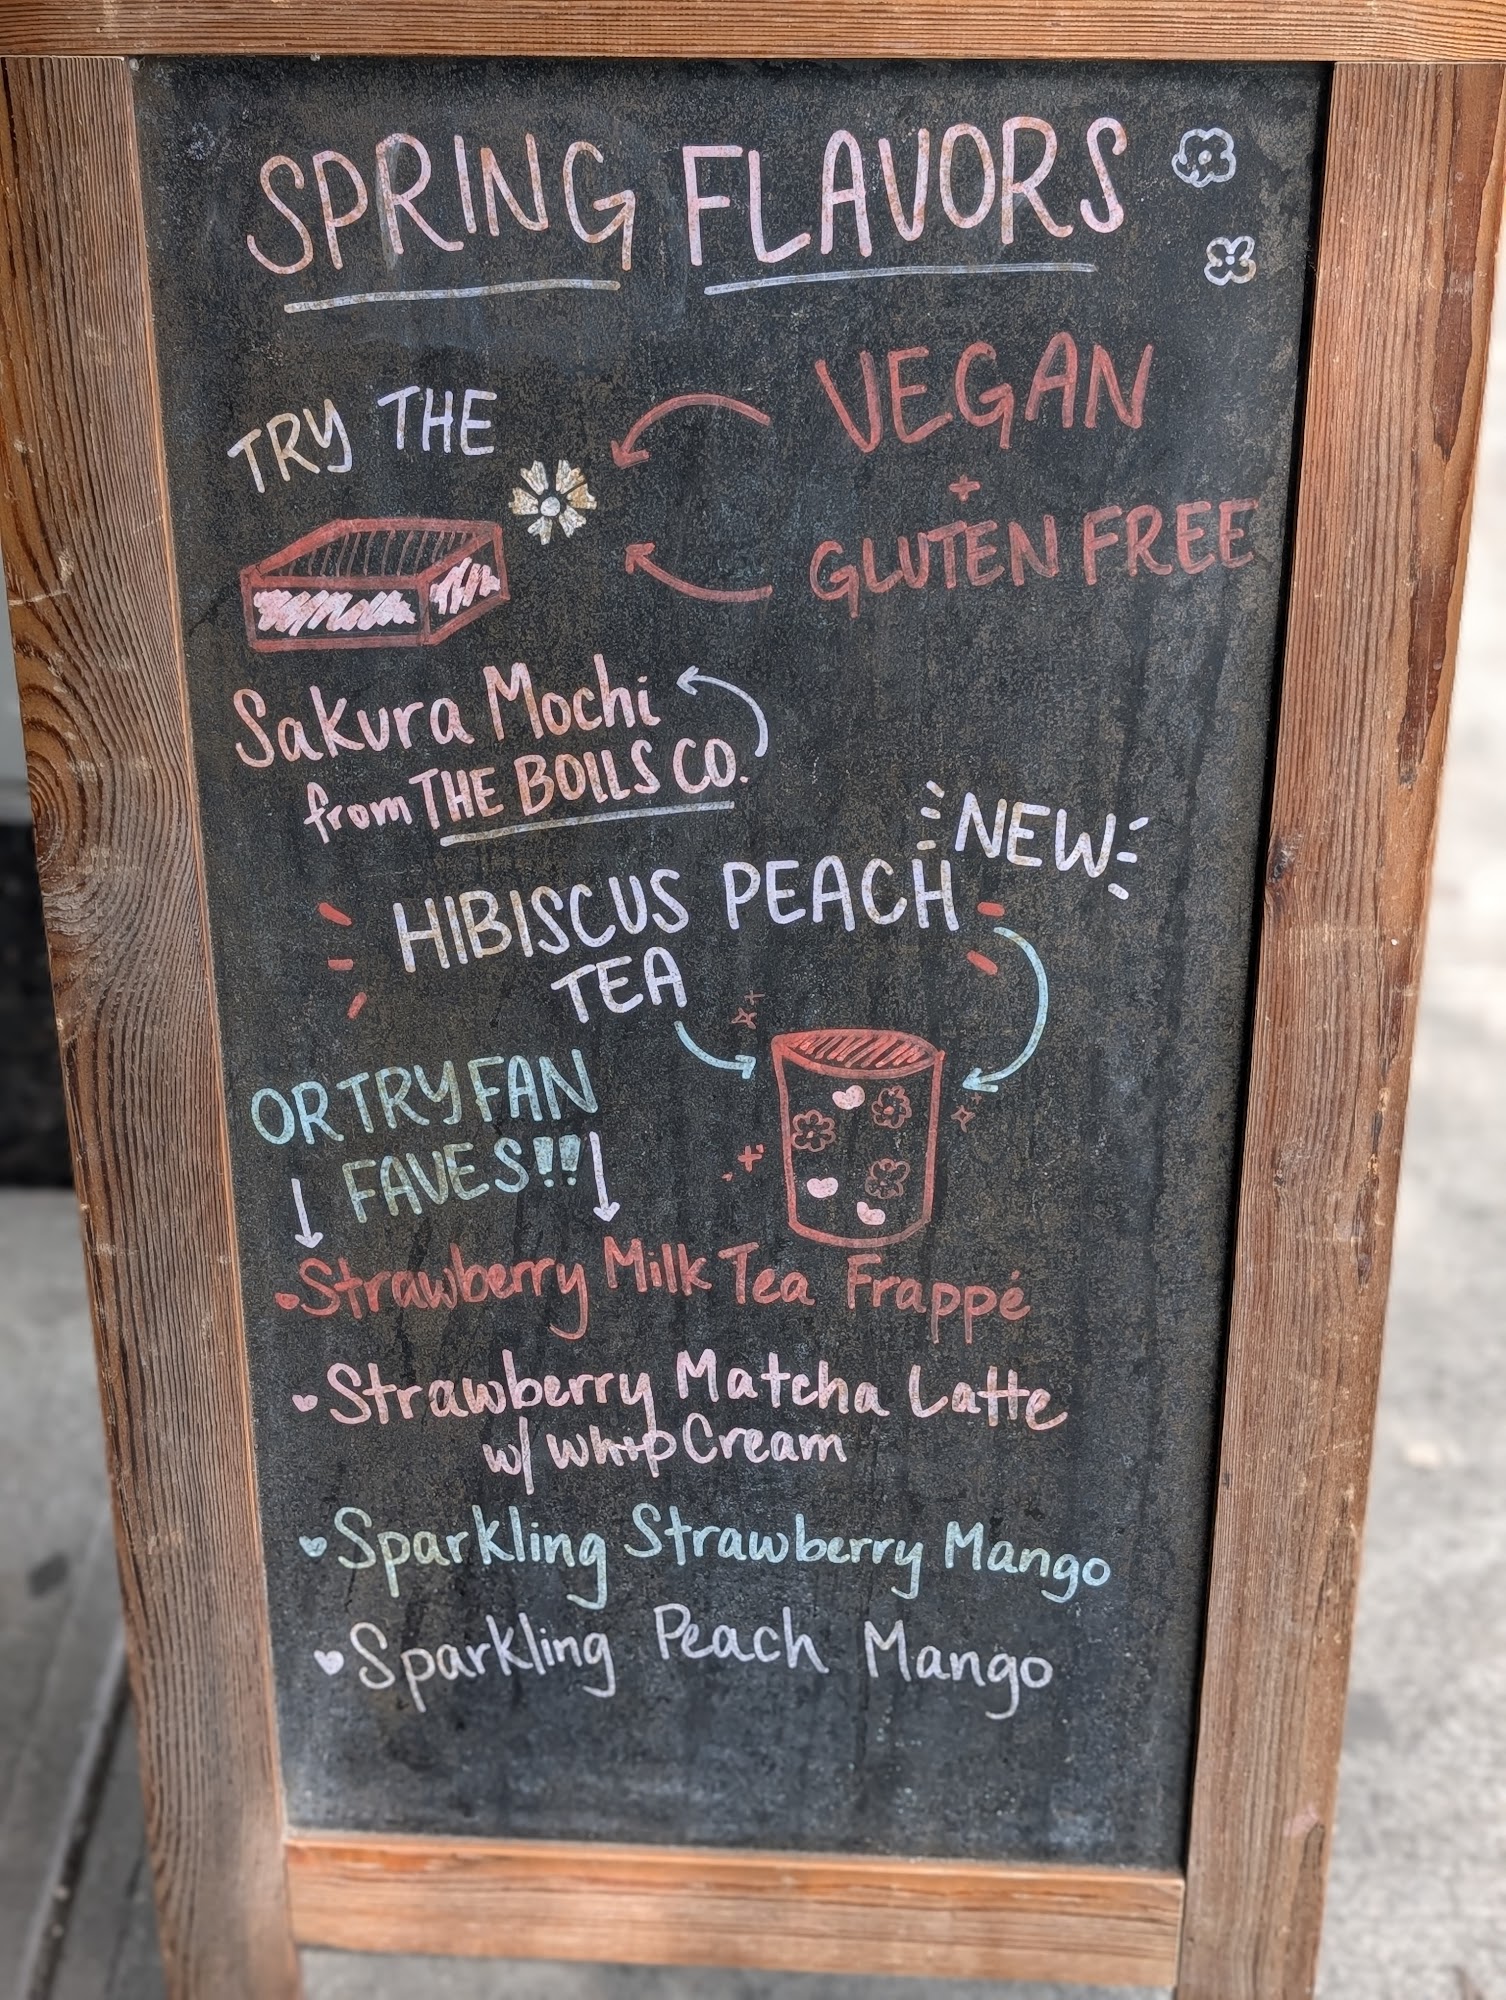 SPRING FLAVORS
TRY THE
VEGAN
+
GLUTEN FREE
Sakura Mochi
from THE BOLLS CO.
NEW
HIBISCUS PEACH
TEA
OR TRY FAN
FAVES!!
Strawberry Milk Tea Frappé
Strawberry Matcha Latte
w/ whip Cream
Sparkling Strawberry Mango
Sparkling Peach Mango